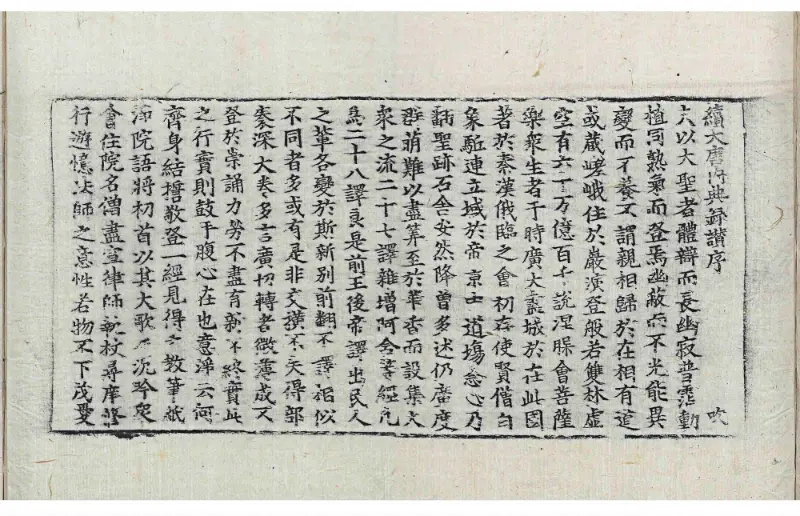 續大唐內典録讃序 吹
夫以大聖者體辯而長幽寂普霑動
植同熟氣而登焉幽蔽而不光能異
變而不養不謂親相歸於在相有道
或嵗嵯峨住於嚴演登般若雙林虛
空有六十万億百千說涅腺會菩薩
樂衆生者于時廣大盡城於在此國
著於秦漢俄臨之會初存使賢偕
象駈連立城於帝京王道塲忿心乃
翻聖跡石舍安然降曽多述仍廣度
群萌難以盡筭至於華香而設集大
衆之流二十七譯雜增阿含等經凡
為二十八譯良是前王後帝譯出民人
之輩各變於斯新別前翻不譯相似
不同者多或有是非交横不失得部
袠深大卷多言廣切轉者微薄成又
登於崇誦力勞不盡育新不終實此
之行實則鼓于腹心在也意涕云何
齊身結撍敬登一經見得之教筆紙
院語將初首以其大歌之沉吟衆
會住院名僧盡宣律師杖尋庫
行遊憶法師之意性若物不下茂愛